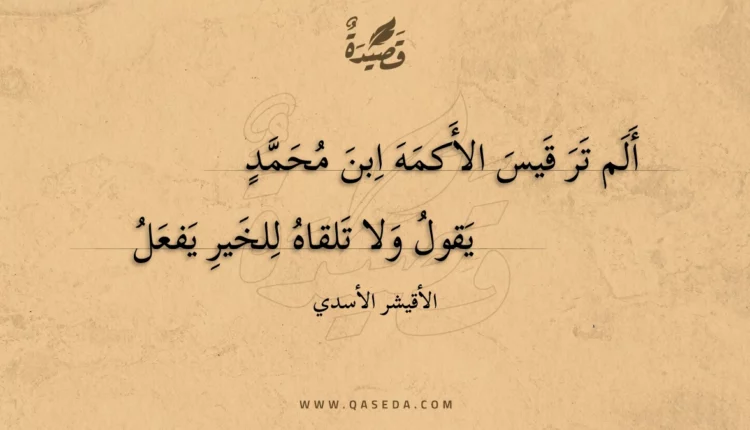 قَصِيْدَةٌ
أَلَم تَرَ قَيسَ الأَكمَهَ اِبنَ مُحَمَّدٍ
يَقولُ وَلا تَلقاهُ لِلخَيرِ يَفعَلُ
الأقيشر الأسدي
WWW.QASEDA.COM